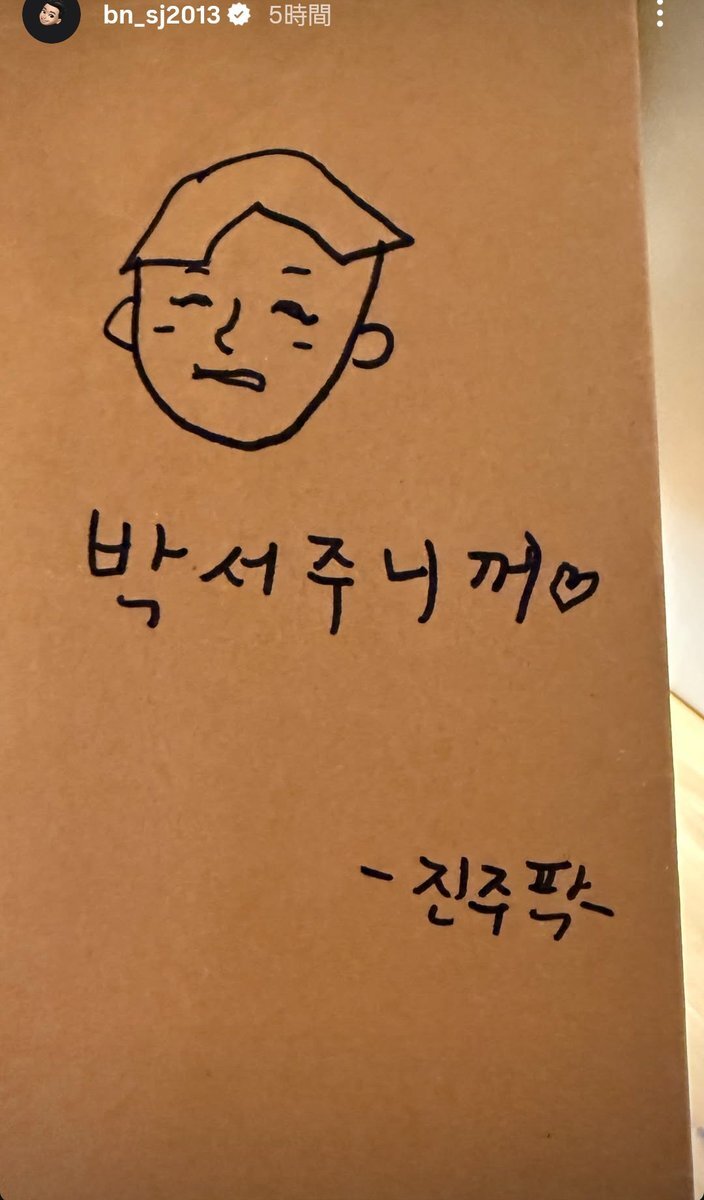 bn_sj2013 5時間
박서주니꺼♡
- 진주팍 -